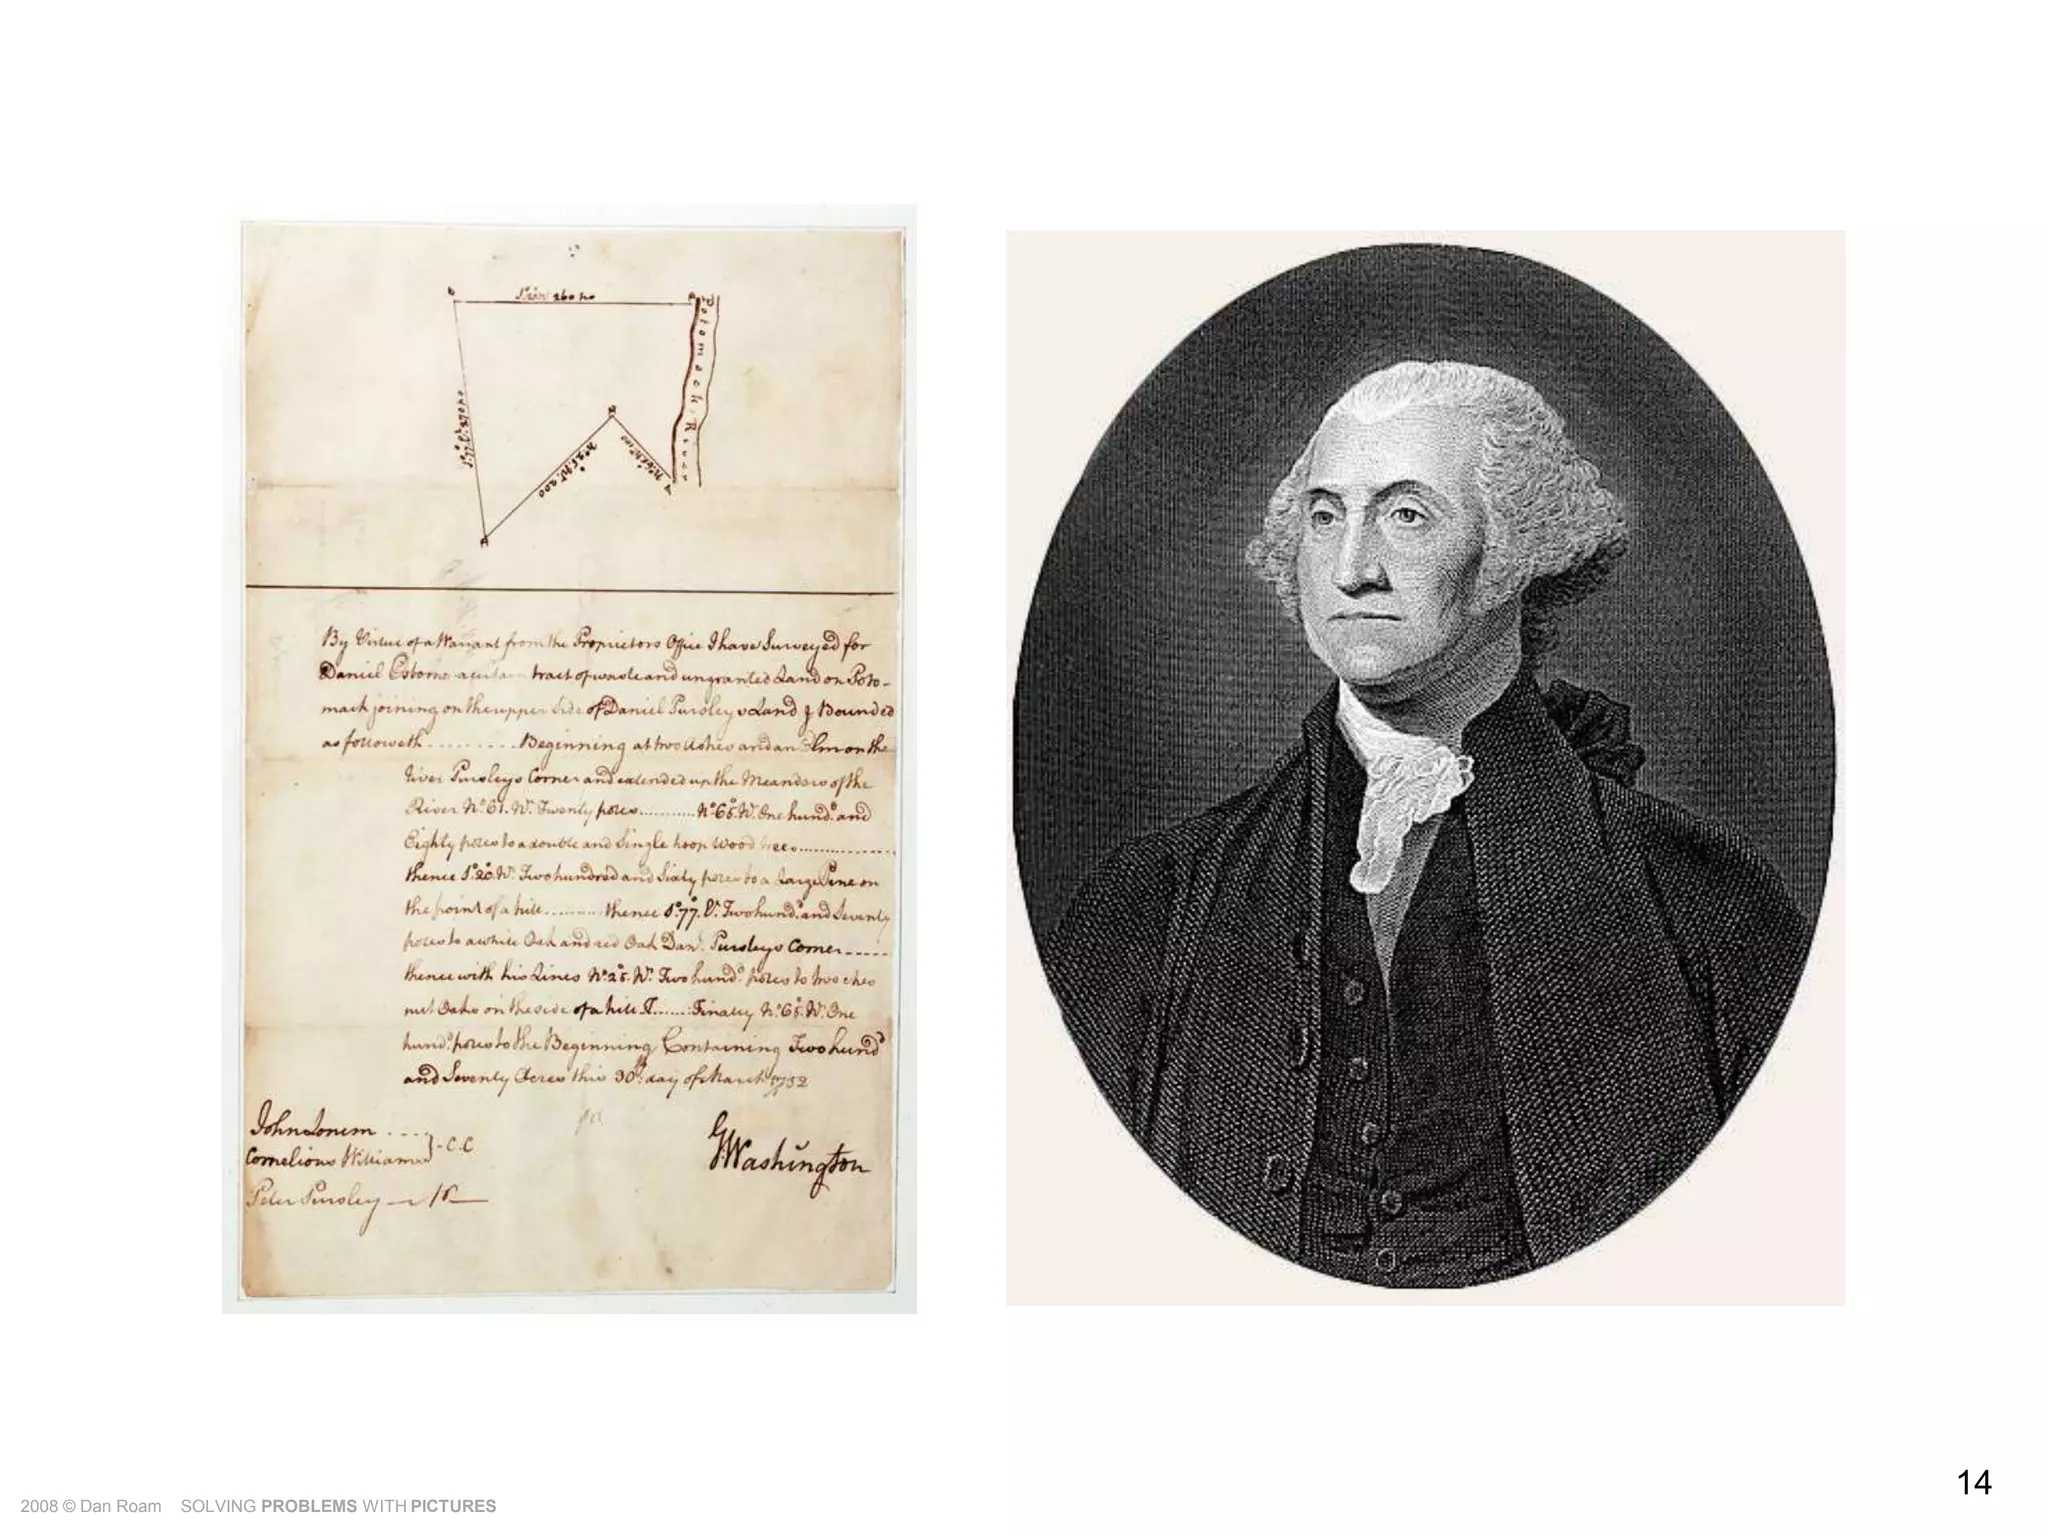 S°20W 260 po
Potomack River
S°77 E 270 po
N°25 W 200
N°65 W 100
By Virtue of a Warrant from the Proprietors Office I have Surveyed for
Daniel Osborne a certain tract of waste and ungranted Land on Poto-
mack joining on the upper side of Daniel Pursleys Land & Bounded
as followeth . . . . . . . . . Beginning at two Ashes and an Elm on the
River Pursleys Corner and extended up the Meanders of the
River N° 61. Wt. Twenty poles............N° 65. Wt. One hundd. and
Eighty poles to a double and Single hoop wood trees..................
thence S° 20. Wt. Two hundred and Sixty poles to a Large Pine on
the point of a hill..........thence S° 77. Et. Two hundd. and Seventy
poles to a white Oak and red Oak Danl. Pursleys Corner-----
thence with his Lines N° 25. Wt. Two hundd. poles to two ches
nut Oaks on the side of a hill &.......Finally N° 65. Wt. One
hundd. poles to the Beginning Containing Two hundd
and Seventy Acres this 30th day of March 1752
John
Cornelious Williams }-C.C
Peter Pursley
GWashington
14
2008 © Dan Roam SOLVING PROBLEMS WITH PICTURES